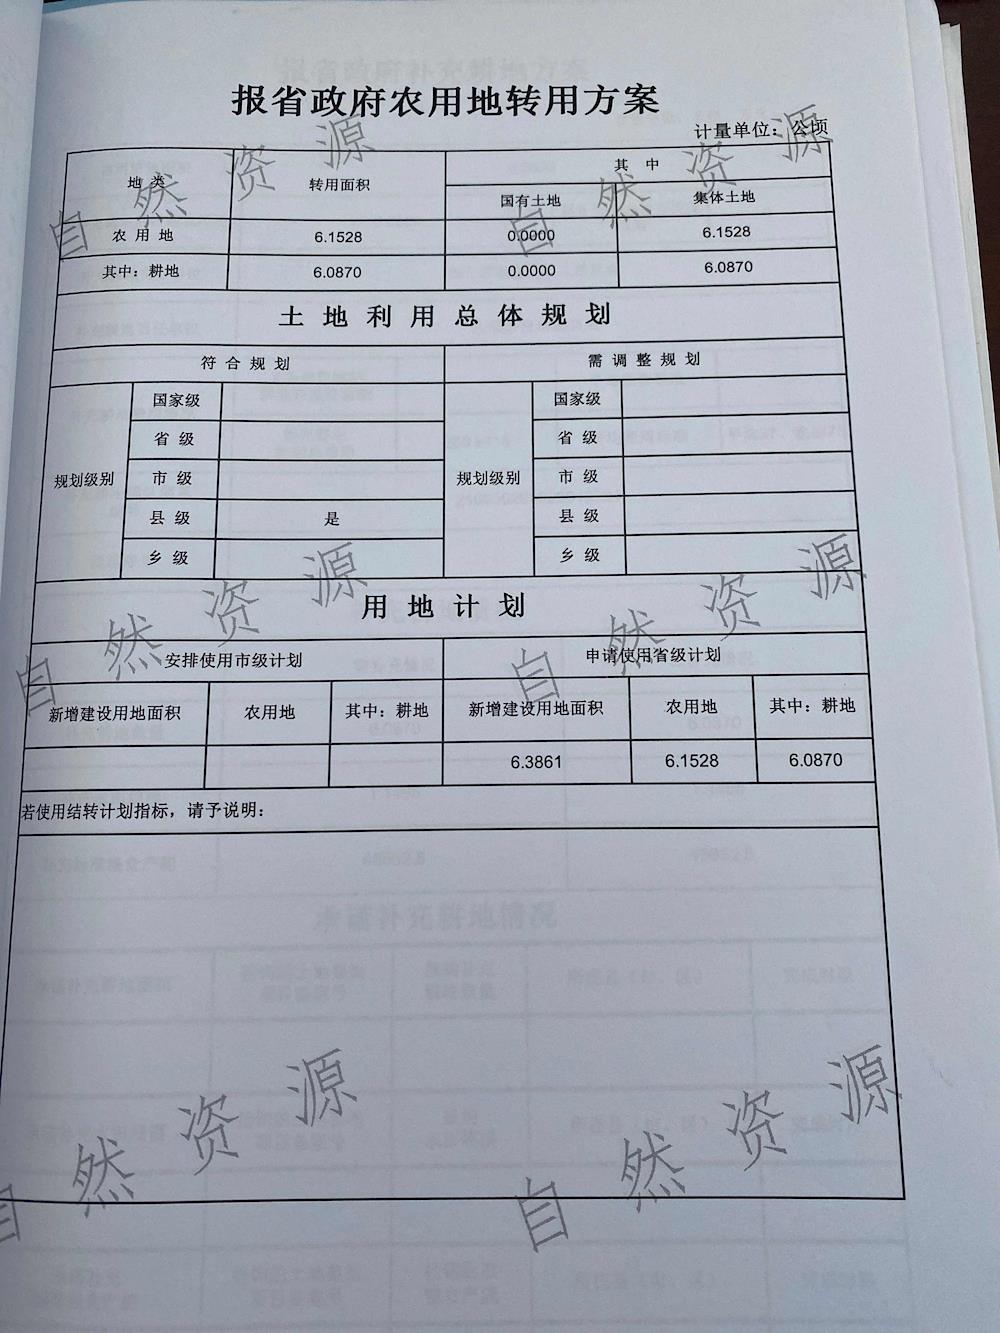 报省政府农用地转用方案
计量单位：公顷
地 类 转用面积 其 中
国有土地 集体土地
农 用 地 6.1528 0.0000 6.1528
其中：耕地 6.0870 0.0000 6.0870
土 地 利 用 总 体 规 划
符 合 规 划 需 调 整 规 划
规划级别 国家级 规划级别 国家级
省 级 省 级
市 级 市 级
县 级 是 县 级
乡 级 乡 级
用 地 计 划
安排使用市级计划 申请使用省级计划
新增建设用地面积 农用地 其中：耕地 新增建设用地面积 农用地 其中：耕地
6.3861 6.1528 6.0870
若使用结转计划指标，请予说明：
自然资源
自然资源
自然资源
自然资源
自然资源
自然资源